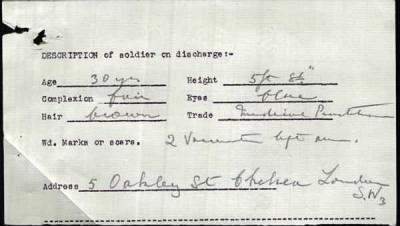 DESCRIPTION of soldier on discharge:-
Age 30 yrs Height 5ft 8½"
Complexion fair Eyes blue
Hair brown Trade
Wd. Marks or scars. 2 Vaccinati left arm.
Address 5 Oakley St Chelsea London
S.W3